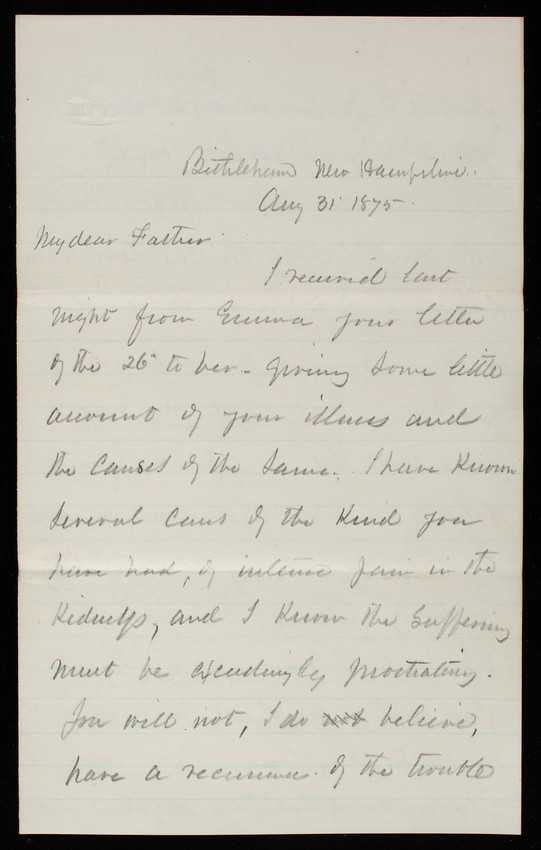 Bethlehem New Hampshire.
Aug 31 1875.
My dear Father
I received last
night from Emma your letter
of the 26" to her - giving some little
account of your illness and
the causes of the same. I have known
several cases of the kind you
have had, of intense pain in the
Kidneys, and I know the suffering
must be exceedingly prostrating.
You will not, I do not believe,
have a recurrence of the trouble